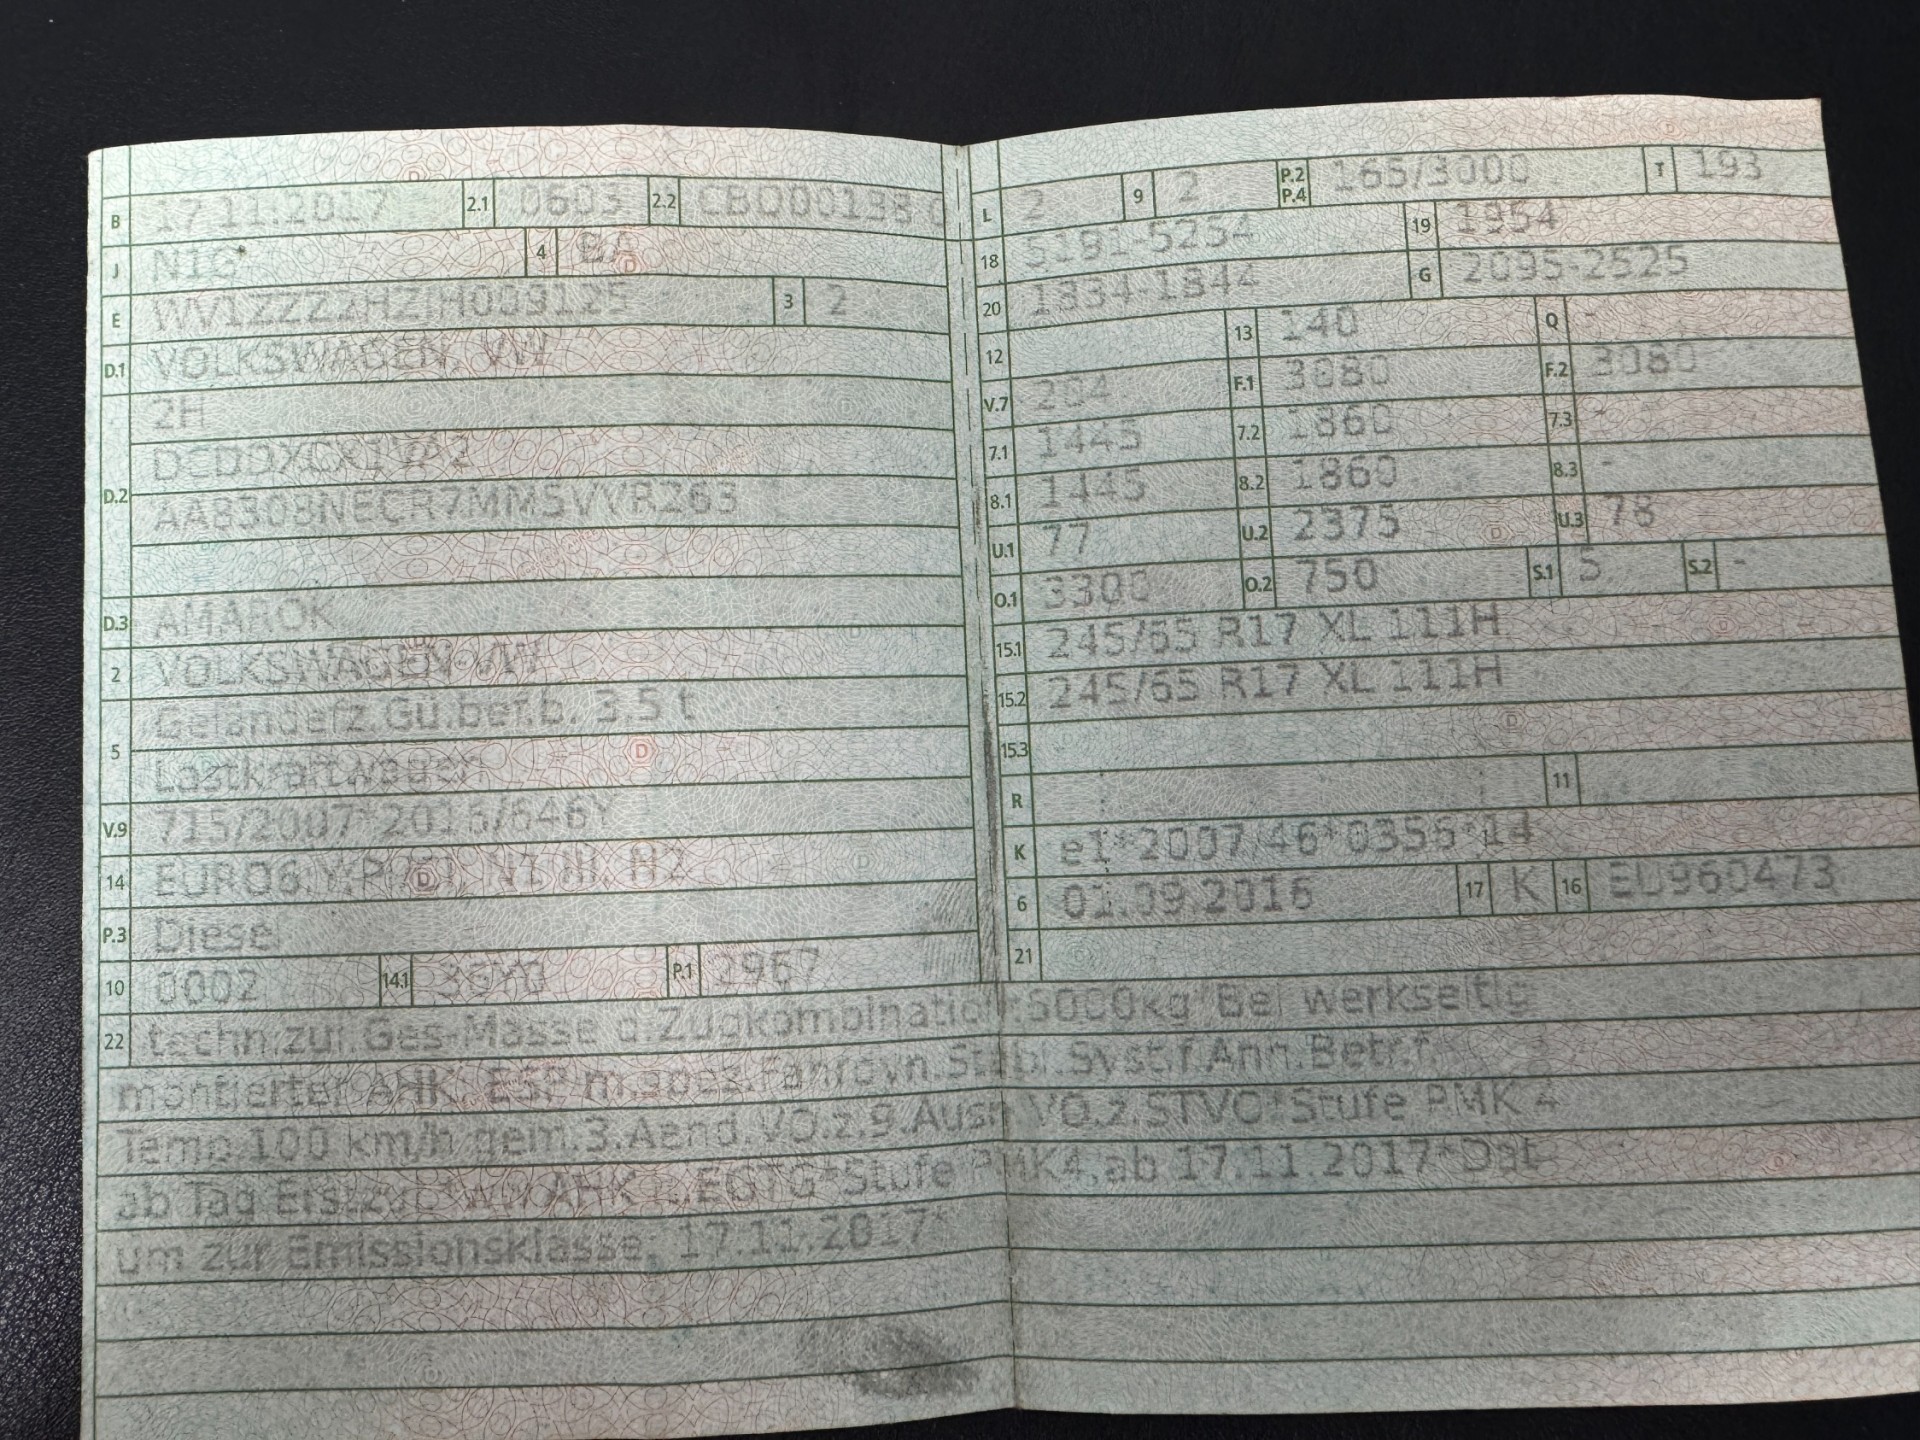 B 17.11.2017 2.1 0603 2.2 CBO00138
J N1G 4 BA
E WV1ZZZ2HZJH009125 3 2
D.1 VOLKSWAGEN, VW
2H
D.2
AA8308NECR7MM5VVR263
D.3 AMAROK
2 VOLKSWAGEN-VW
5 Geländefz.Gü.bef.b. 3,5 t
Lastkraftwagen
V.9 715/2007*2016/646Y
14 EURO6;Y;PI/CI, N1 III, N2
P.3 Diesel
10 0002 14.1 36Y0 P.1 2967
L 2 9 2 P.2 P.4 165/3000 T 193
18 5191-5254 19 1954
20 1834-1844 G 2095-2525
12 13 140 Q -
V.7 204 F.1 3080 F.2 3080
7.1 1445 7.2 1860 7.3 -
8.1 1445 8.2 1860 8.3 -
U.1 77 U.2 2375 U.3 78
O.1 3300 O.2 750 S.1 5 S.2 -
15.1 245/65 R17 XL 111H
15.2 245/65 R17 XL 111H
15.3
R 11
K e1*2007/46*0356*14
6 01.09.2016 17 K 16 EU960473
21
22 techn.zul.Ges-Masse d.Zugkombination:6000kg*Bei werkseitig
montierter AHK: ESP m.spez.Fahrdyn.Stabl.Syst.f.Ann.Betr.f.
Temp.100 km/h gem.3.Aend.VO.z.9.Ausn.VO.z.STVO*Stufe PMK 4
ab Tag Erstzul.*ww.AHK lt.EGTG*Stufe PMK4,ab 17.11.2017*Dat
um zur Emissionsklasse: 17.11.2017*